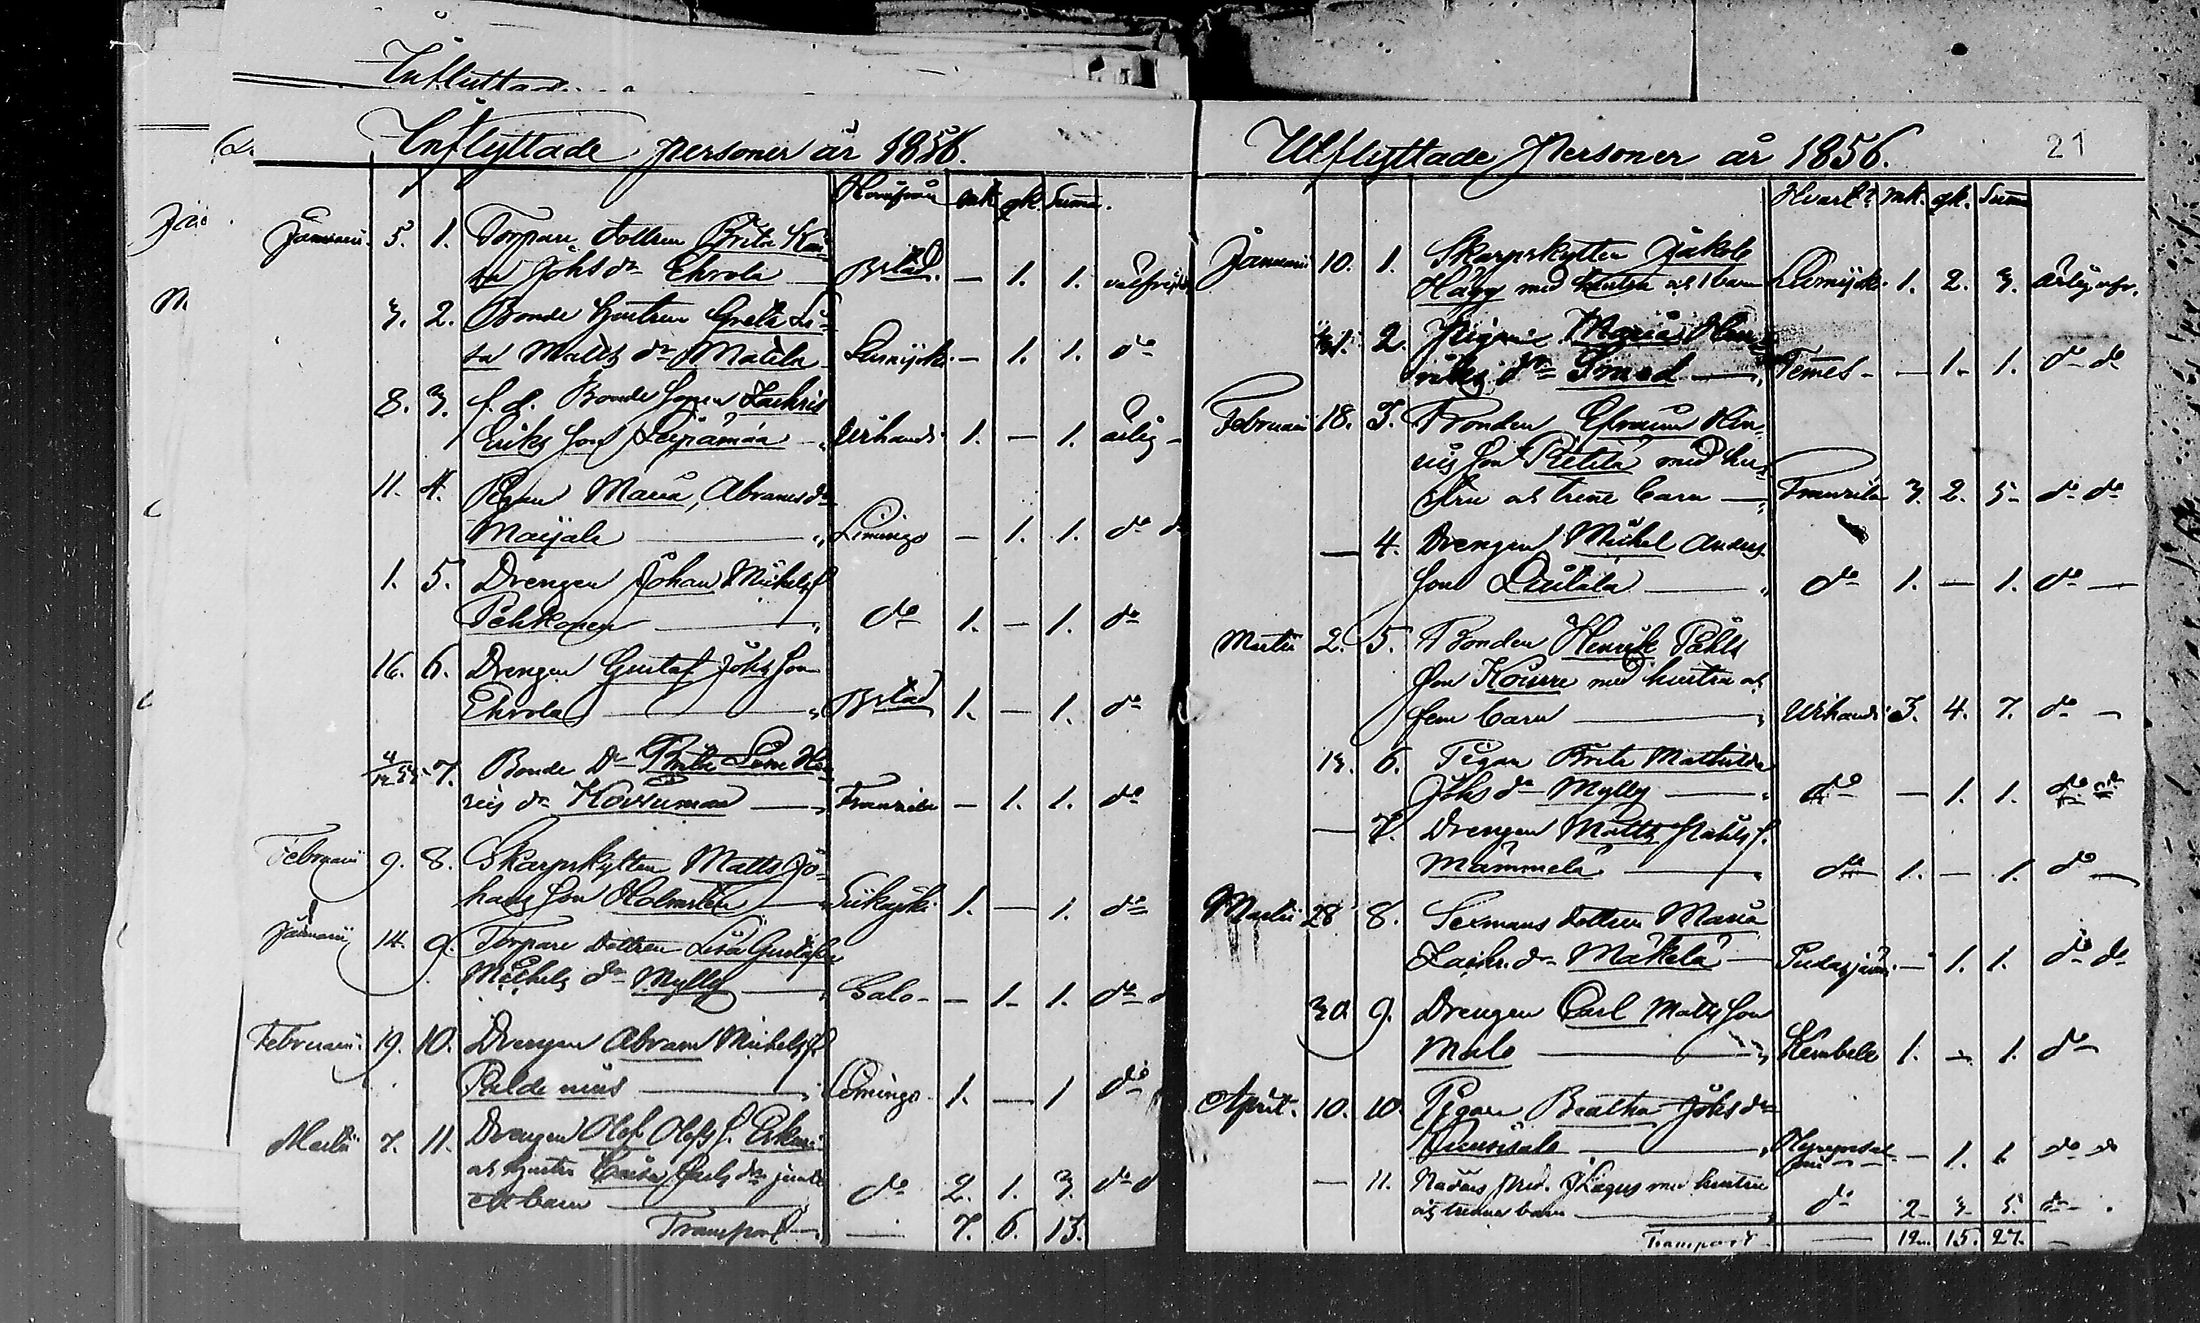 Inflyttade
Inflyttade personer år 1856.
mk. qk. Summa.
Januarii. 5. 1. Torpare dottren Brita Kai-
sa Johs dr Ehrola Bstad. — 1. 1. välfrejd
3. 2. Bonde hustrun Greta Li-
sa Matts dr Matila Lumijoki — 1. 1. do
8. 3. f. d. Bonde Sonen Zachris
Eriks Son Leppämaa Uhrhandi 1. — 1. ärlig
11. 4. Pigan Maria Abrams dr
Maijala Limingo — 1. 1. do do
1. 5. Drengen Johan Mickels S.
Pehkonen do 1. — 1. do
16. 6. Drengen Gustaf Johs Son
Ehrola Bstad 1. — 1. do
7. Bonde dr Brita Lisa Hen-
rics dr Frantsila — 1. 1. do
Februarii 9. 8. Skarpskytten Matts Jo-
hans Son Holmsten Siikajoki 1. — 1. do
Januarii 14. 9. Torpare Dottren Lisa Gustafva
Michels dr Mylly Salo — 1. 1. do
Februarii. 19. 10. Drengen Abram Mickels S.
Paldanius Limingo. 1. — 1 do
Martii 7. 11. Drengen Olof Olofs S.
och hustru Caisa dr jemte
ett barn do 2. 1. 3. do d
Transport — 7. 6. 13.
Utflyttade Personer år 1856. 21
Hvart? mk. qk. Summa
Januarii 10. 1. Skarpskytten Jakob
Hägg med hustru och 1 barn Lumijoki. 1. 2. 3. ärlig o fr.
31. 2. Pigan Maria Hen-
riks dr Smed Temes — 1. 1. do do
Februarii 18. 3. Bonden Efraim Hen-
rics Son Pietilä med hu-
stru och trenne barn Frantsila 3. 2. 5 do do
— 4. Drengen Michel Anders
Son do 1. — 1. do —
Martii 2. 5. Bonden Henrik Påhls
Son Kourre med hustru och
fem barn Uhrhandi 3. 4. 7. do —
13. 6. Pigan Brita Mathilda
Johs dr Mylly do — 1. 1. do do
— 7. Drengen Matts Påhls S.
Mämmelä do 1. — 1. do —
Martii 28 8. Sexmans dottren Maria
Zachr. dr Mäkelä Pudasjärvi. — 1. 1. do do
30. 9. Drengen Carl Matts Son
Malo Kembele 1. — 1. do
April. 10. 10. Pigan Beatha Johs dr
— 1. 1 do do
— 11. Lagus med hustru
och trenne barn do 2 3 5 do
Transport — 12. 15. 27. —